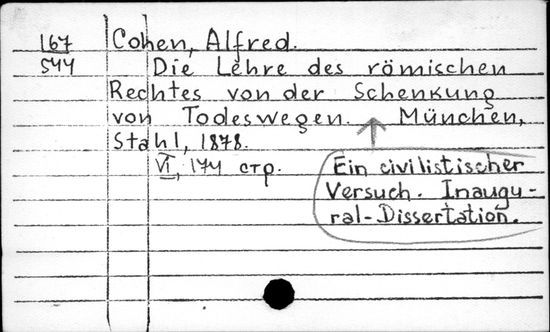 167
544
Cohen, Alfred.
Die Lehre des römischen
Rechtes von der Schenkung
von Todeswegen. München,
Stahl, 1878.
VI, 174 стр.
Ein civilistischer
Versuch. Inaugu-
ral-Dissertation.